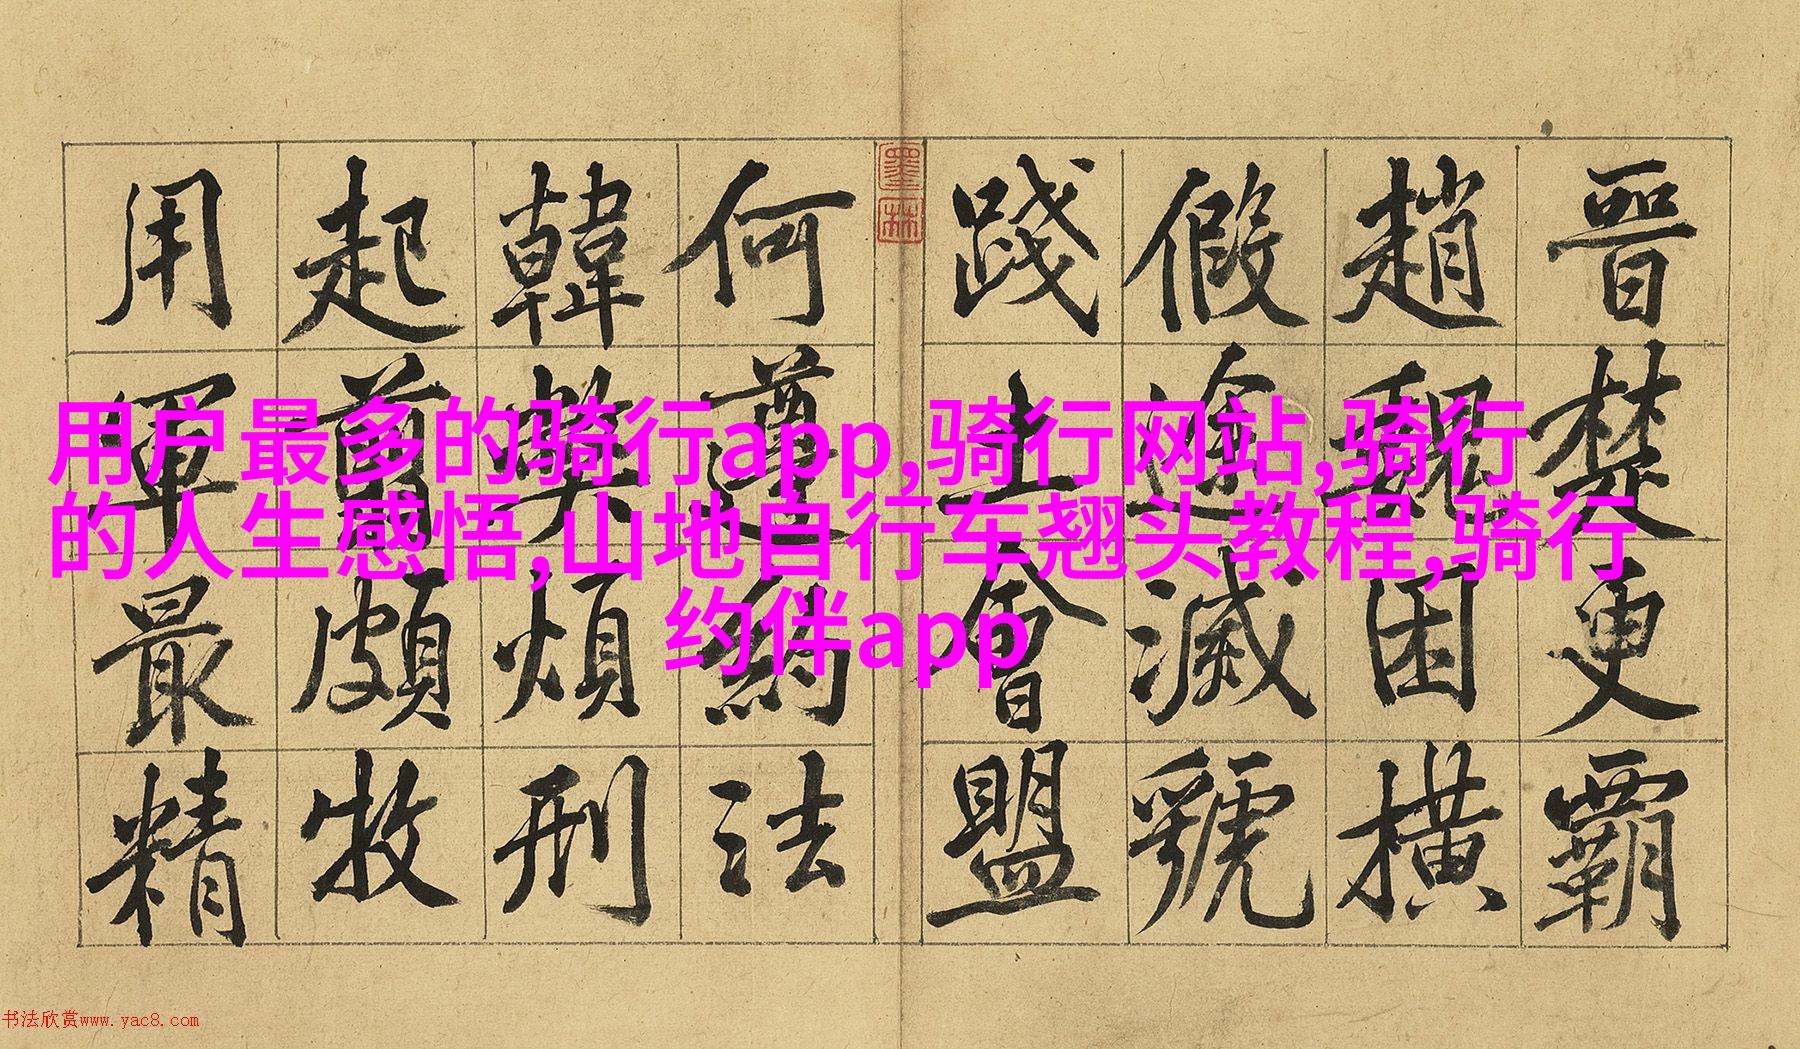 晉楚更霸
趙魏困橫
假途滅虢
踐土會盟
何遵約法
韓弊煩刑
起翦頗牧
用軍最精
墨林
用户最多的骑行app,骑行网站,骑行
的人生感悟,山地自行车翘头教程,骑行
约伴app
书法欣赏www.yac8.com